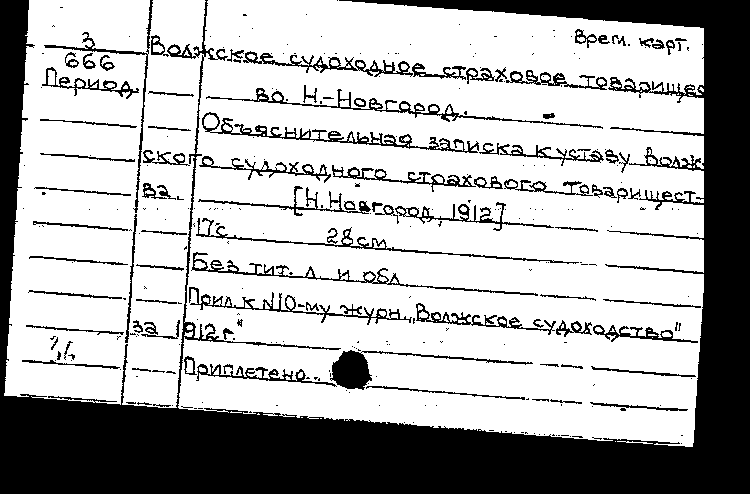 Врем. карт.
3
666
Период.
Волжское судоходное страховое товарищес
во. Н.-Новгород.
Объяснительная записка к уставу Волж-
ского судоходного страхового товарищест-
ва.
[Н.Новгород, 1912]
17с. 28см.
Без тит. л. и обл.
Прил. к N10-му журн. „Волжское судоходство"
за 1912г."
Приплетено.